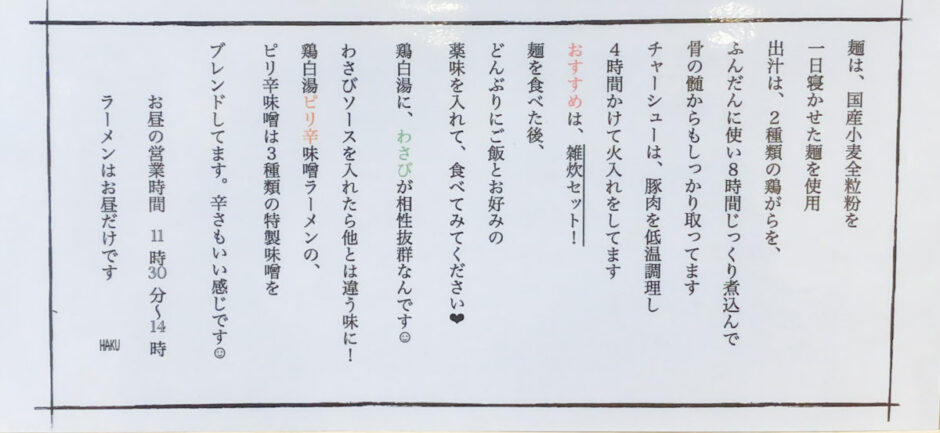 麺は、国産小麦全粒粉を
一日寝かせた麺を使用
出汁は、２種類の鶏がらを、
ふんだんに使い８時間じっくり煮込んで
骨の髄からもしっかり取ってます
チャーシューは、豚肉を低温調理し
４時間かけて火入れをしてます
おすすめは、雑炊セット！
麺を食べた後、
どんぶりにご飯とお好みの
薬味を入れて、食べてみてください❤
鶏白湯に、わさびが相性抜群なんです☺
わさびソースを入れたら他とは違う味に！
鶏白湯ピリ辛味噌ラーメンの、
ピリ辛味噌は３種類の特製味噌を
ブレンドしてます。辛さもいい感じです☺
お昼の営業時間 11時30分〜14時
ラーメンはお昼だけです
HAKU